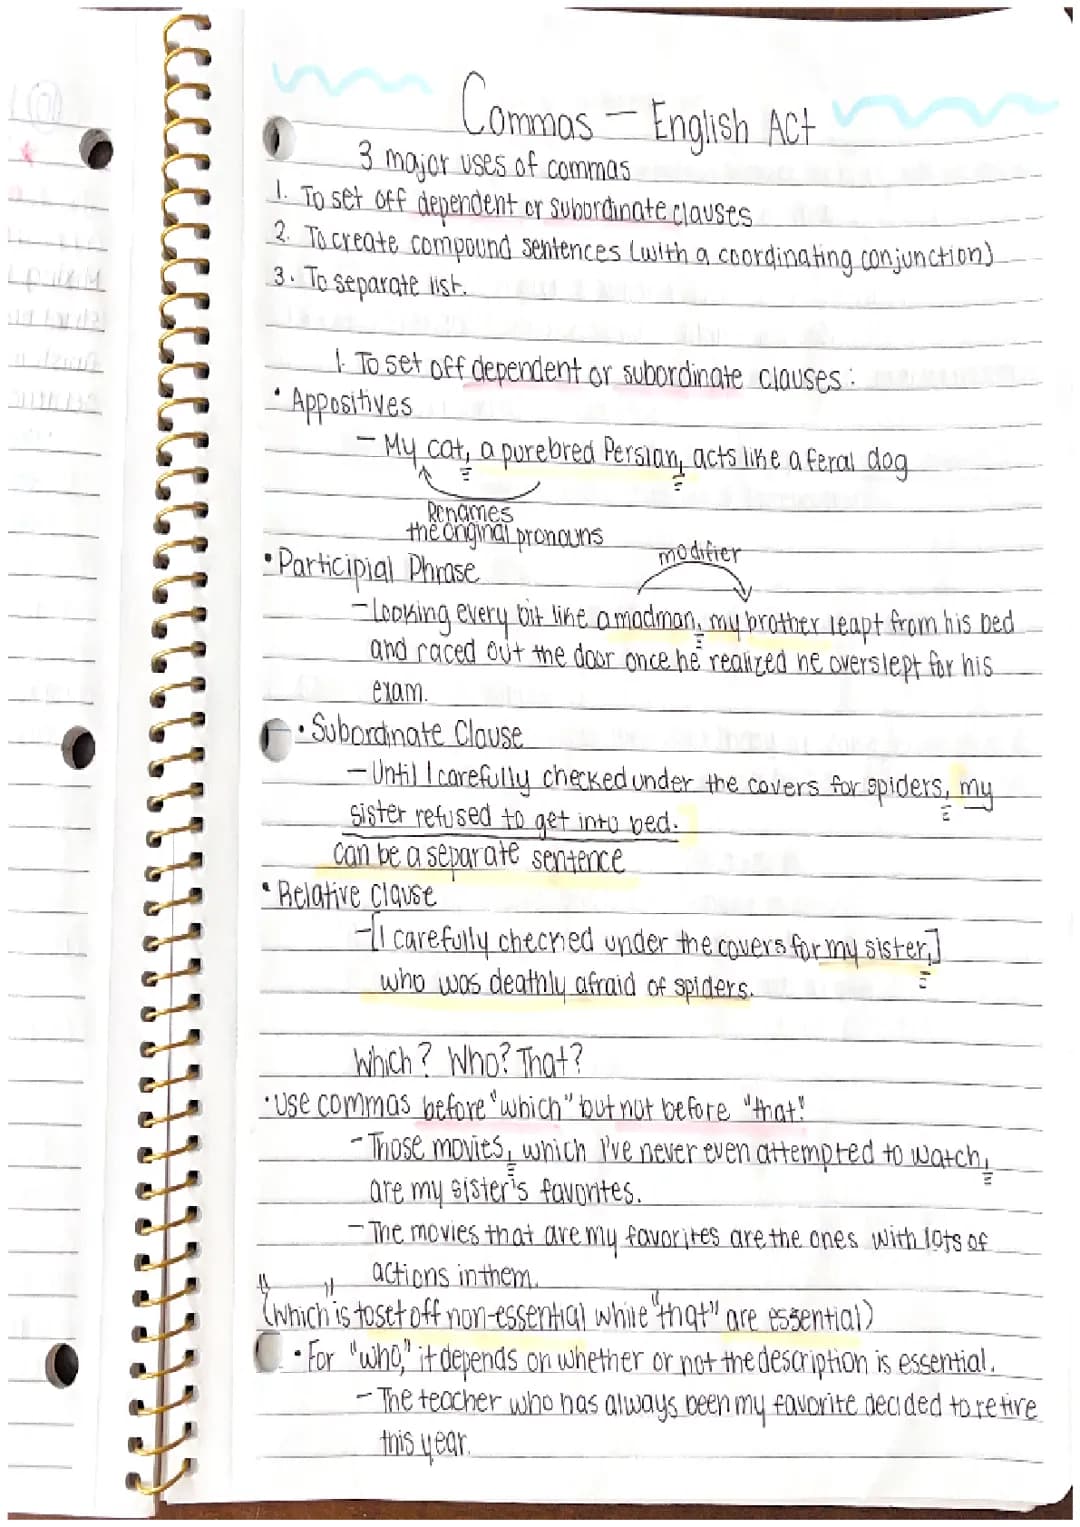 Commas – English ACT
3 major uses of commas
1. To set off dependent or subordinate clauses
2. To create compound sentences (with a coordinating conjunction)
3. To separate list.
1. To set off dependent or subordinate clauses:
• Appositives
– My cat, a purebred Persian, acts like a feral dog
Renames
the original pronouns
modifier
• Participial Phrase
– Looking every bit like a madman, my brother leapt from his bed
and raced out the door once he realized he overslept for his
exam.
• Subordinate Clause
– Until I carefully checked under the covers for spiders, my
sister refused to get into bed.
can be a separate sentence
• Relative Clause
– [I carefully checked under the covers for my sister,]
who was deathly afraid of spiders.
Which? Who? That?
• Use commas before "which" but not before "that".
– Those movies, which I've never even attempted to watch,
are my sister's favorites.
– The movies that are my favorites are the ones with lots of
actions in them.
("which" is to set off non-essential while "that" are essential)
• For "who," it depends on whether or not the description is essential.
– The teacher who has always been my favorite decided to retire
this year.